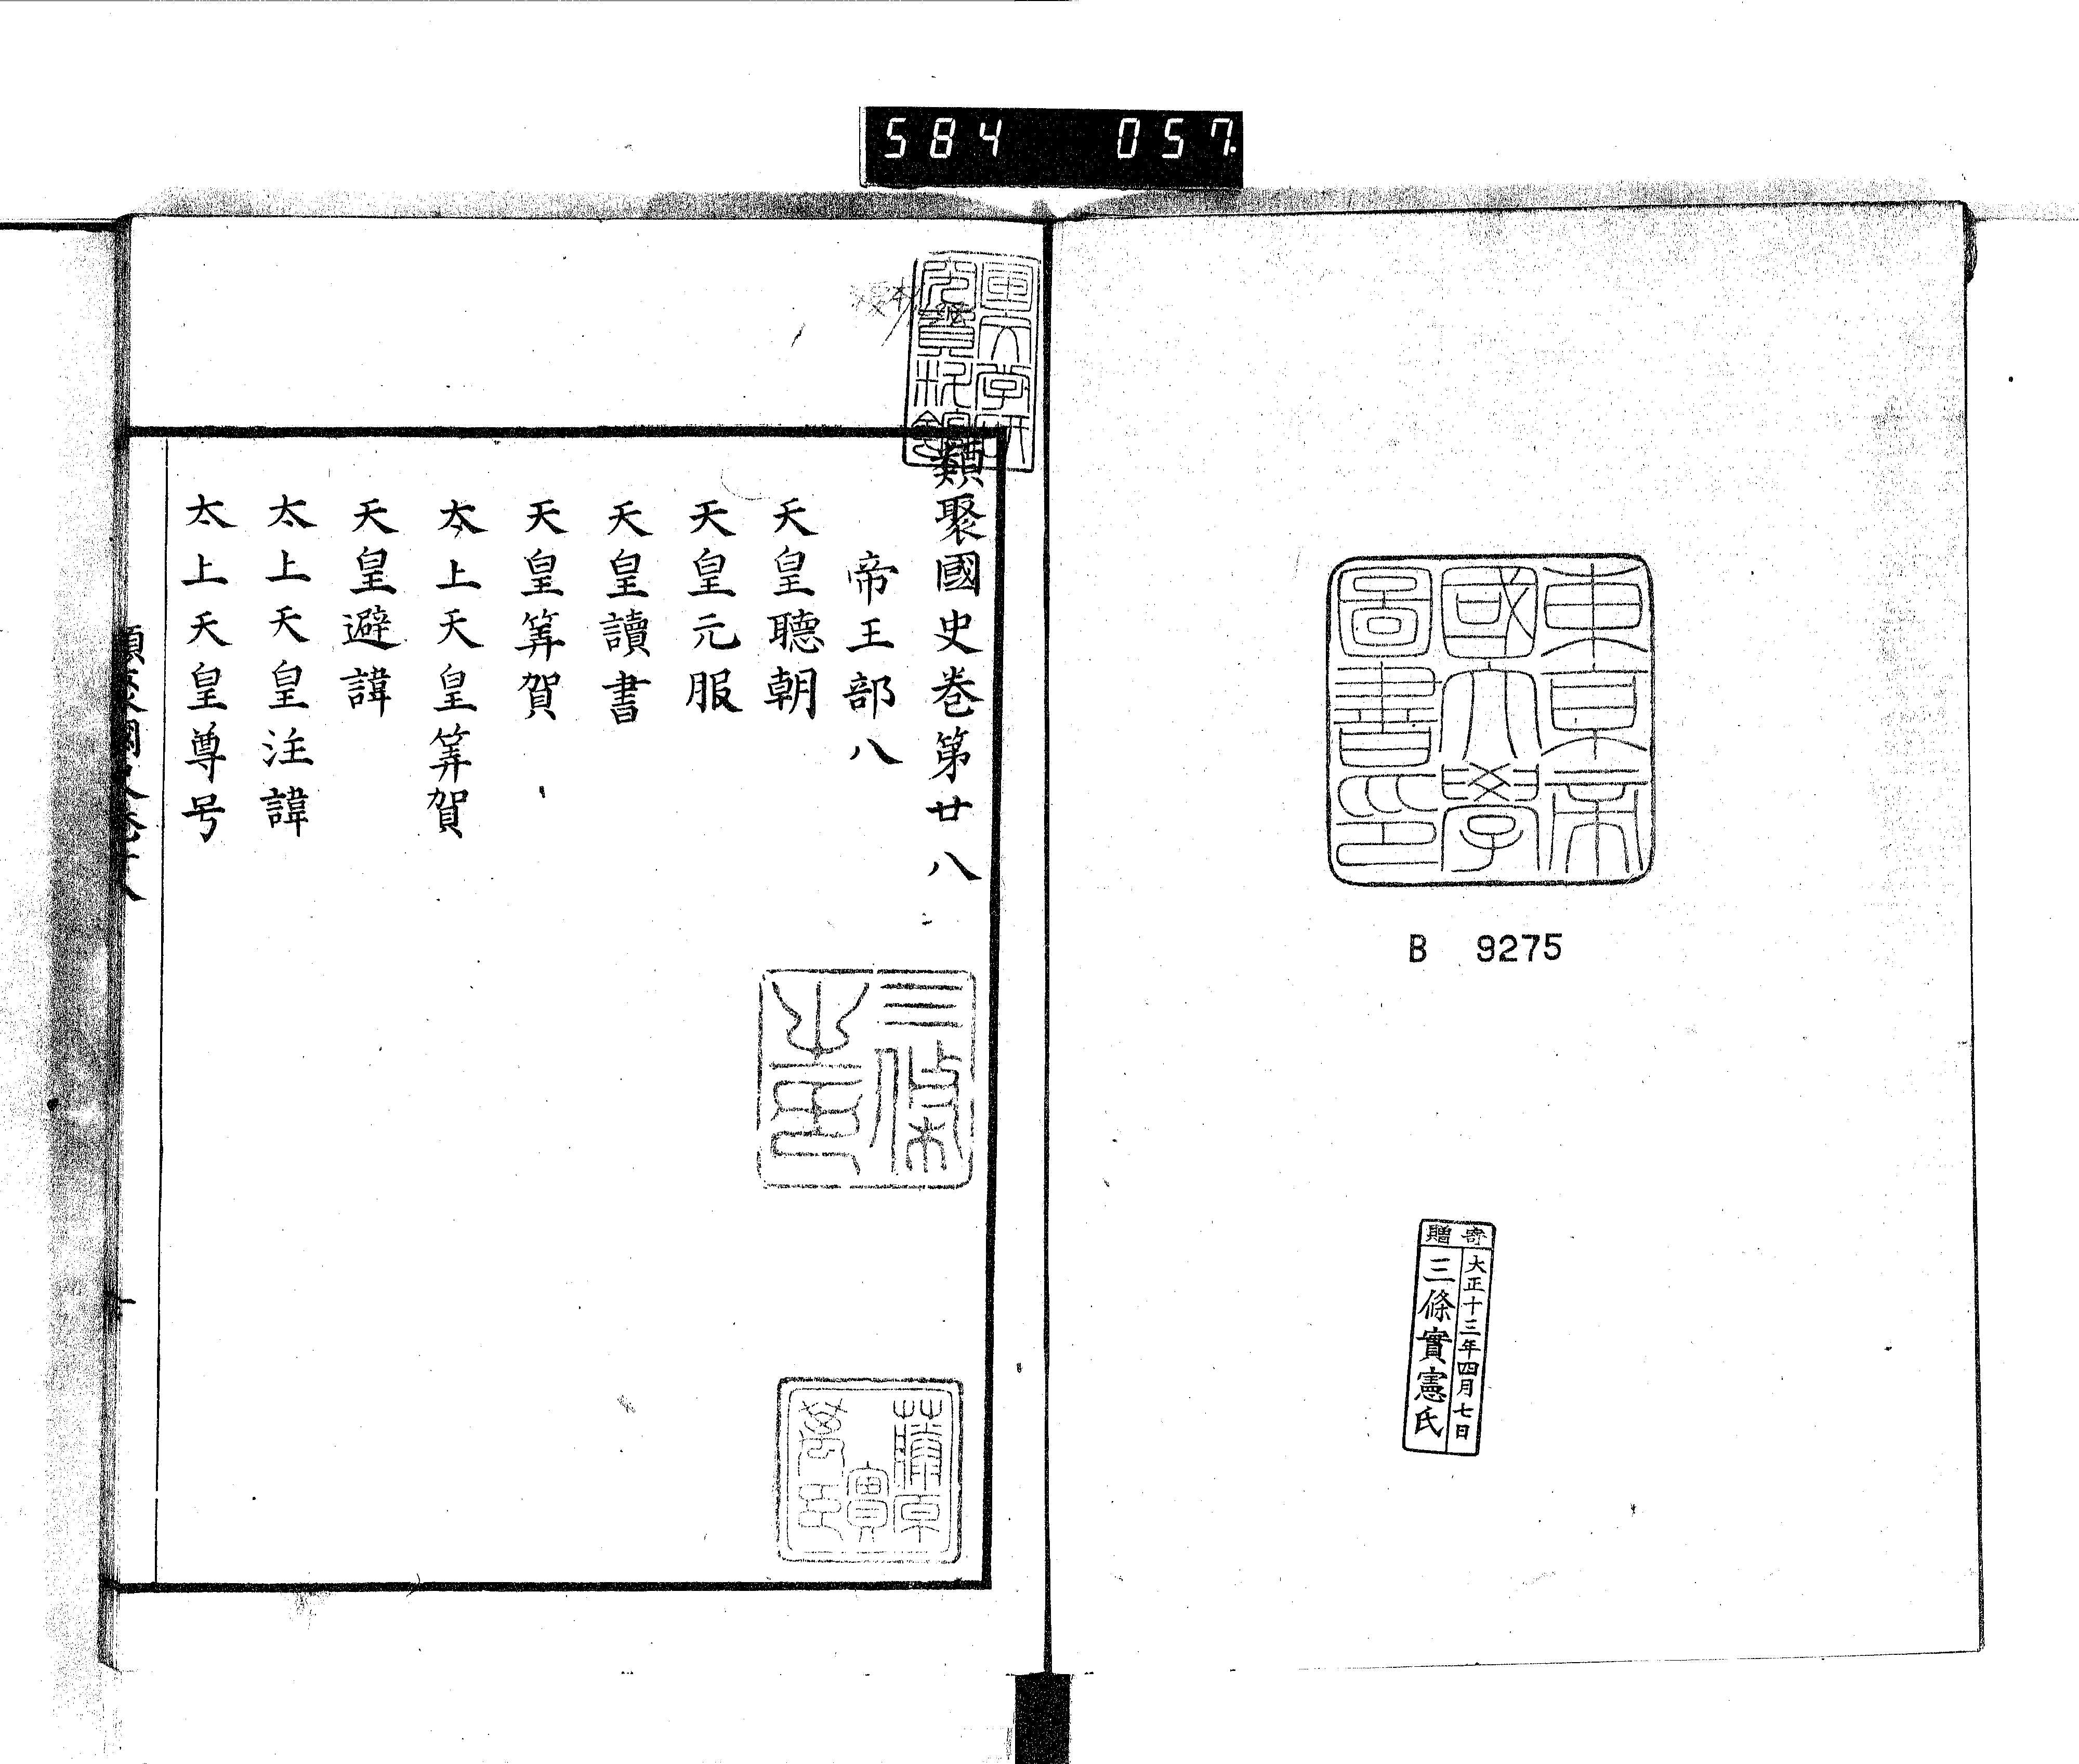 584 057.
東京帝
國大學
圖書印
B 9275
寄贈
大正十三年四月七日
三條實憲氏
類聚國史卷第廿八
帝王部八
天皇聽朝
天皇元服
天皇讀書
天皇筭賀
太上天皇筭賀
天皇避諱
太上天皇注諱
太上天皇尊号
三條
之印
藤原
實
萬印